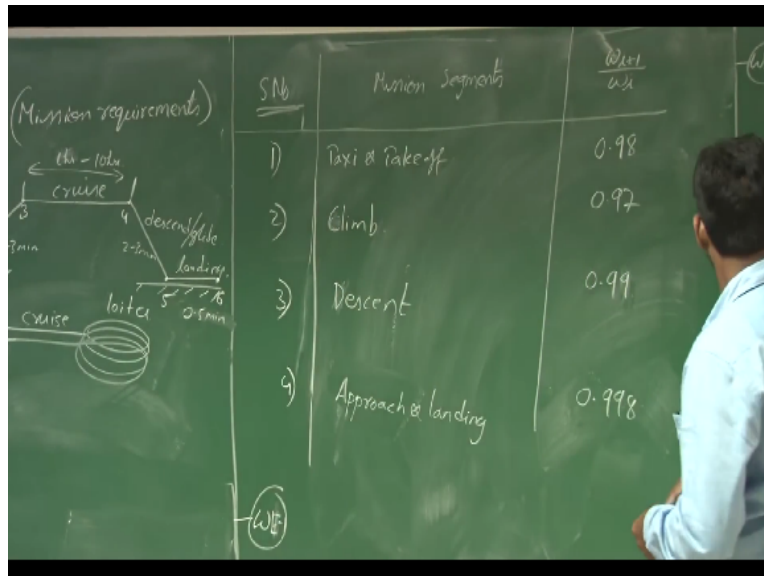 (Mission requirements)
1hr - 10hr
cruise
3
4
descend/glide
3min
2-3min
landing
5
6
0.5min
cruise
loiter
SNo
Mission Segments
Wi+1
Wi
1) Taxi & Takeoff 0.98
2) Climb 0.97
3) Descent 0.99
4) Approach & landing 0.998